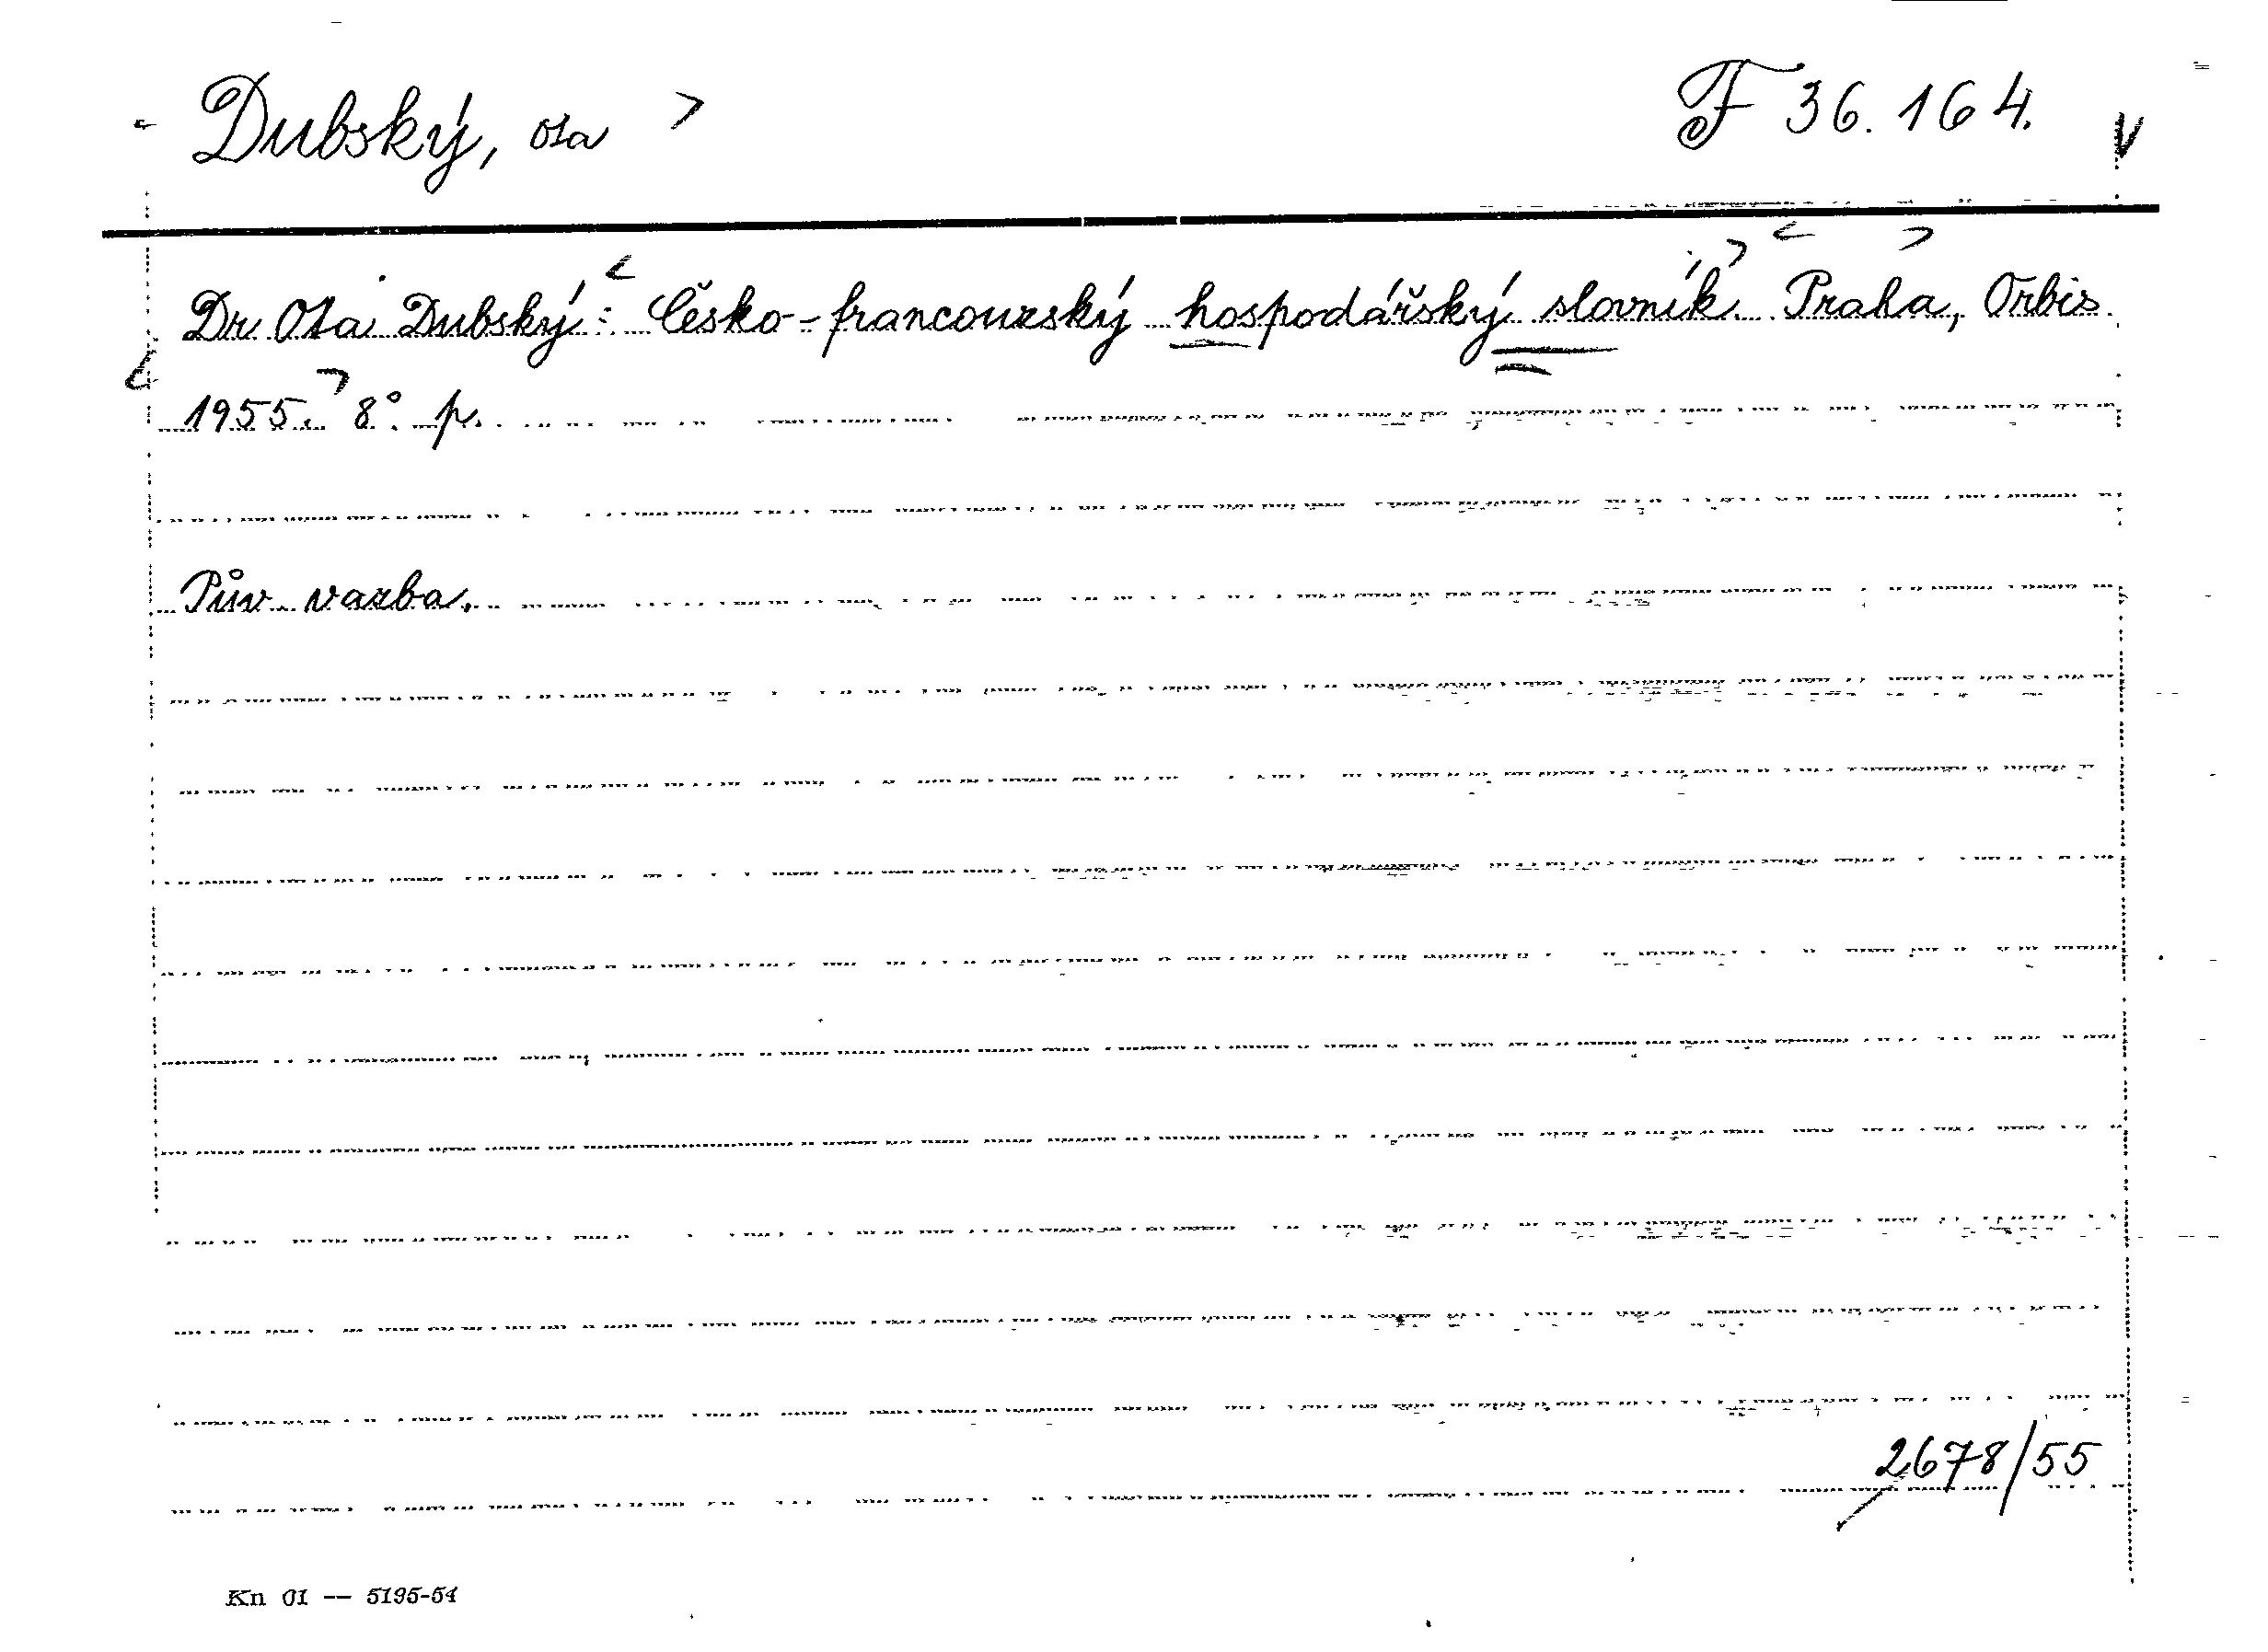 Dubský, Ota F 36.164.
Dr Ota Dubský: Česko-francouzský hospodářský slovník. Praha, Orbis
1955. 8°. p.
Pův. vazba.
2678/55
Kn 01 — 5195-54